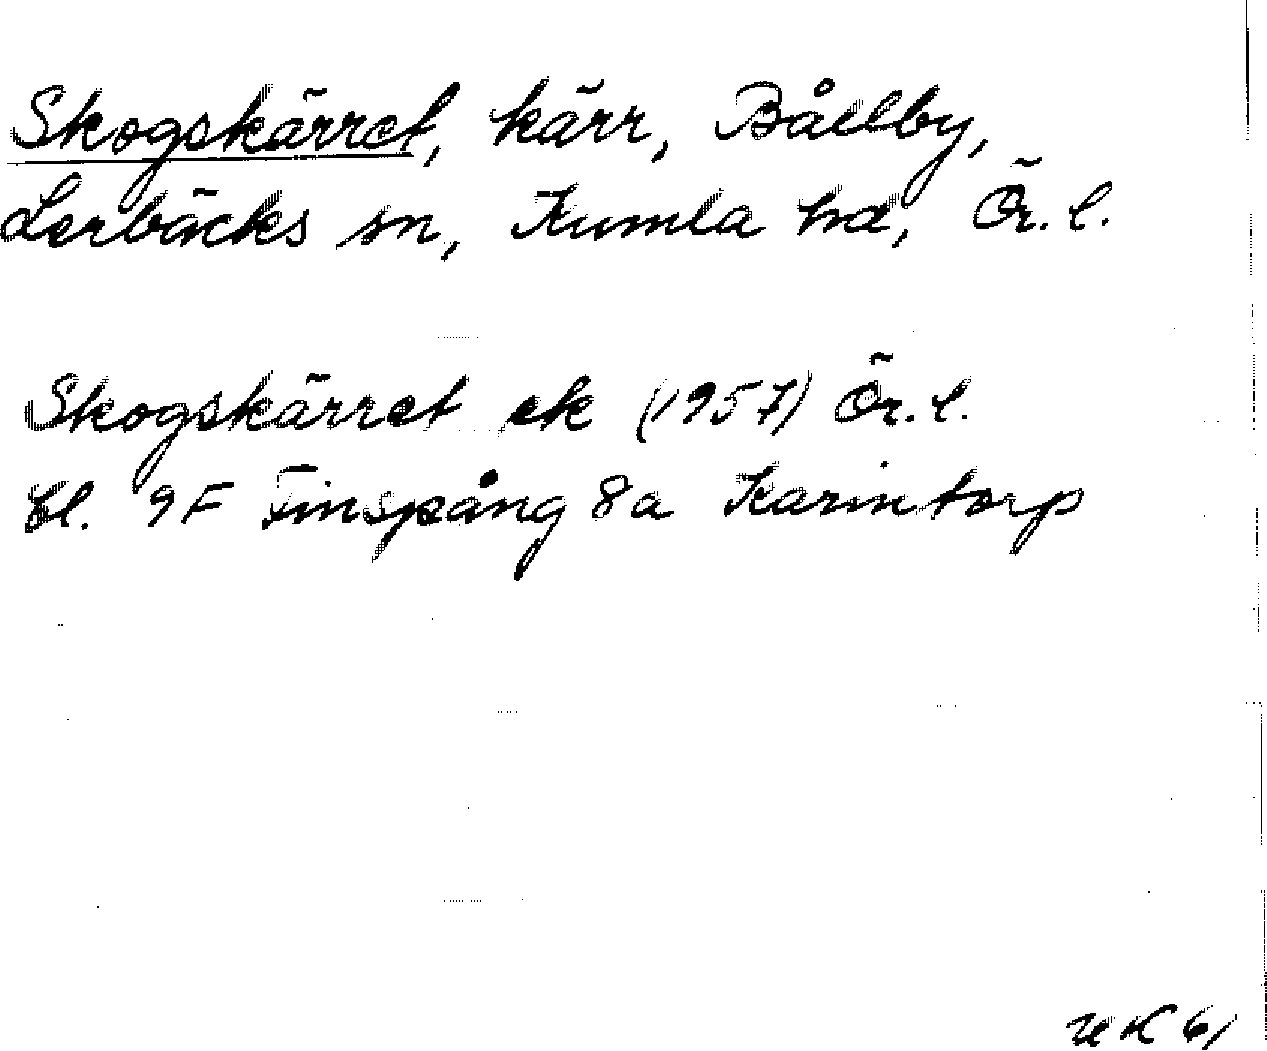 Skogskärret, kärr, Bållby,
Lerbäcks sn, Kumla hd, Ör. l.
Skogskärret ek (1957) Ör. l.
bl. 9F Finspång 8a Karintorp
UK 61